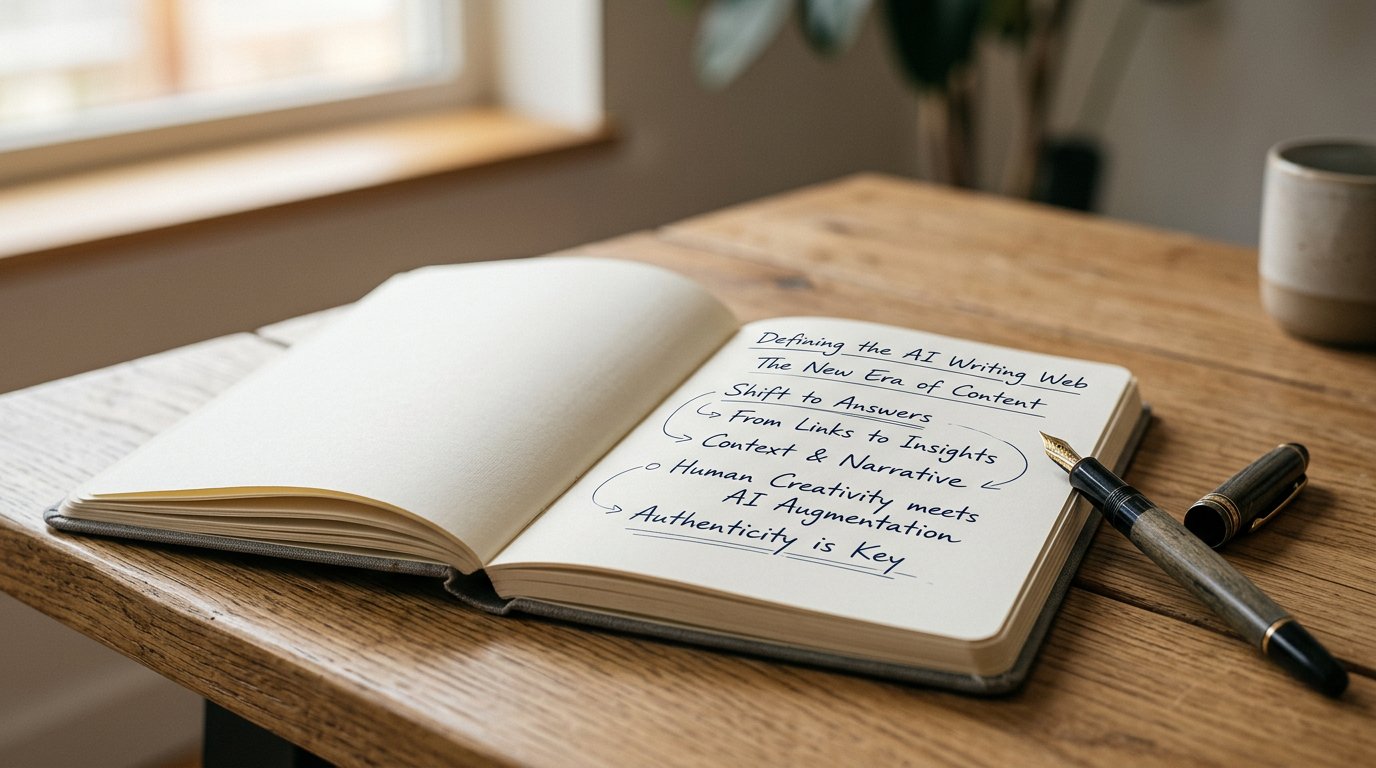 Defining the AI Writing Web
The New Era of Content
Shift to Answers
From Links to Insights
Context & Narrative
Human Creativity meets
AI Augmentation
Authenticity is Key